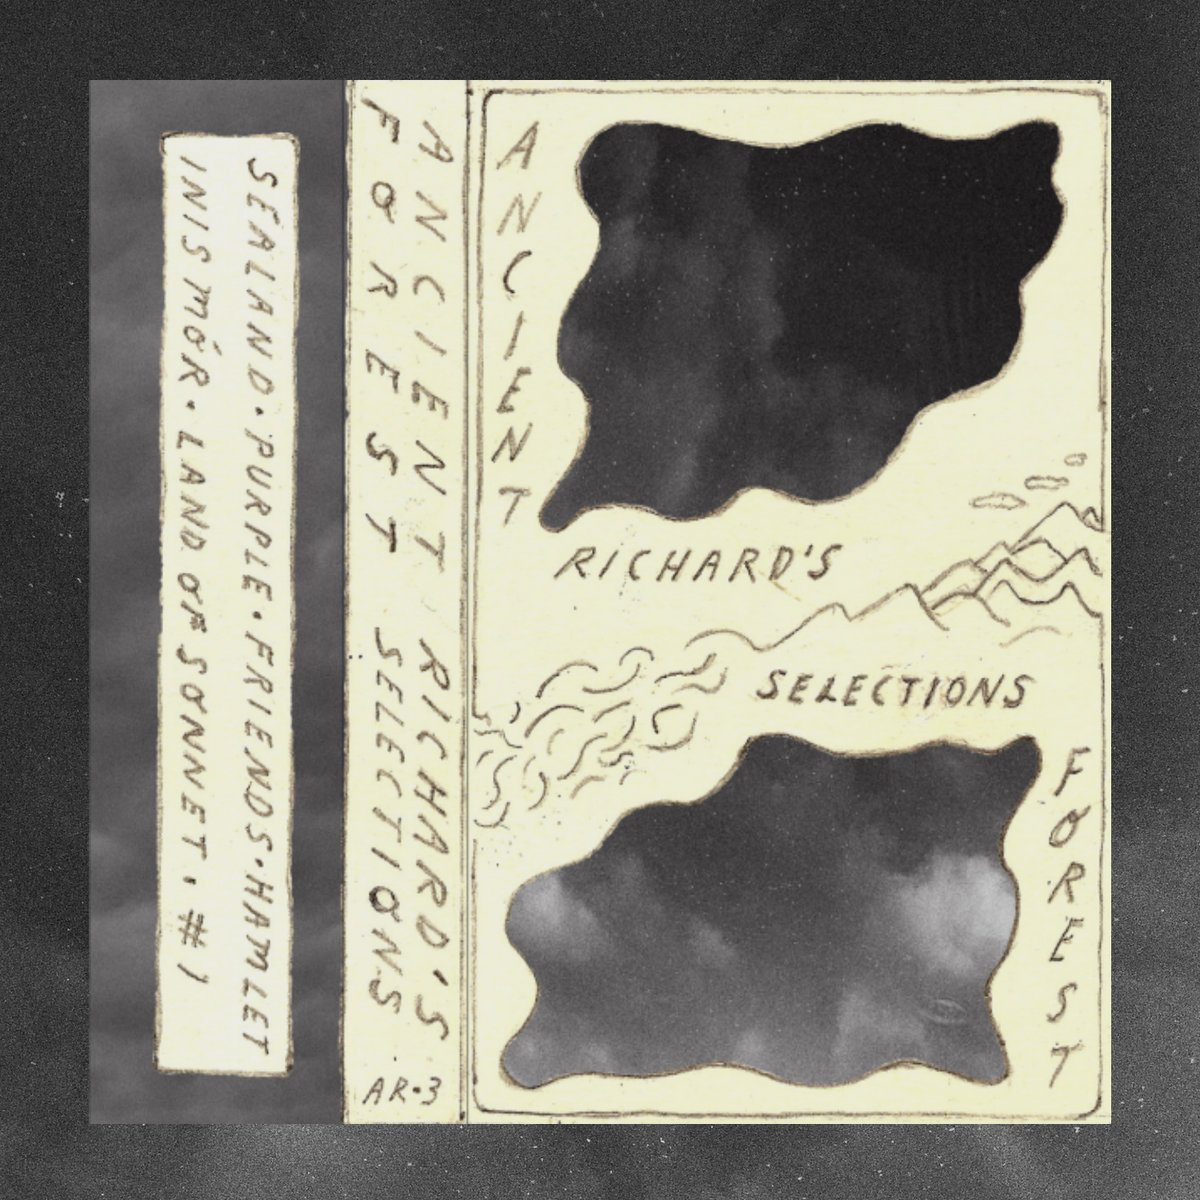 SEALAND · PURPLE · FRIENDS · HAMLET
INIS MÓR · LAND OF SONNET · #1
ANCIENT RICHARD'S
FOREST SELECTIONS
AR·3
ANCIENT
RICHARD'S
SELECTIONS
FOREST